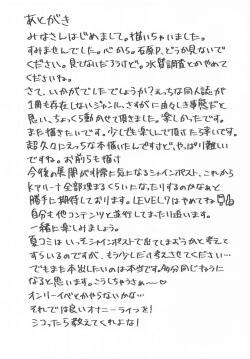 あとがき
みなさんはじめまして。描いちゃいました。
すみませんでした。心から。石原P、どうか見ないで
ください。見てないだろうけど。水質調査とかやめて
くださいね。
さて、いかがでしたでしょうか?えっちな同人誌が
1冊も存在しないジャンル、さすがに由々しき事態だと
思い、ちょっくら動かせて頂きました。楽しかったです。
また描きたいです。少しでも楽しんで頂けたら幸いです。
超久々にえっちな本描いたんですけど、やっぱり難しい
ですね。お前らも描け
今後の展開が非常に気になるシャインポスト、これから
Kアリーナ全部埋まるくらいになったりするのかなぁと
勝手に期待しております。LEVEL7はやめてね
自分も他コンテンツと並行してまったり追います。
一緒に楽しみましょう。
夏コミはいっそシャインポストで出てしまおうかと考えて
すらいるのですが、もう少しだけ考えさせてください…
でもまた本出したいのは本当です。多分同じようになる
なると思います。こうしちゃうさぁ〜♡
オンリーイベとかやらないかな…
それでは良いオナニーライフを!
シコったら教えてくれよな!